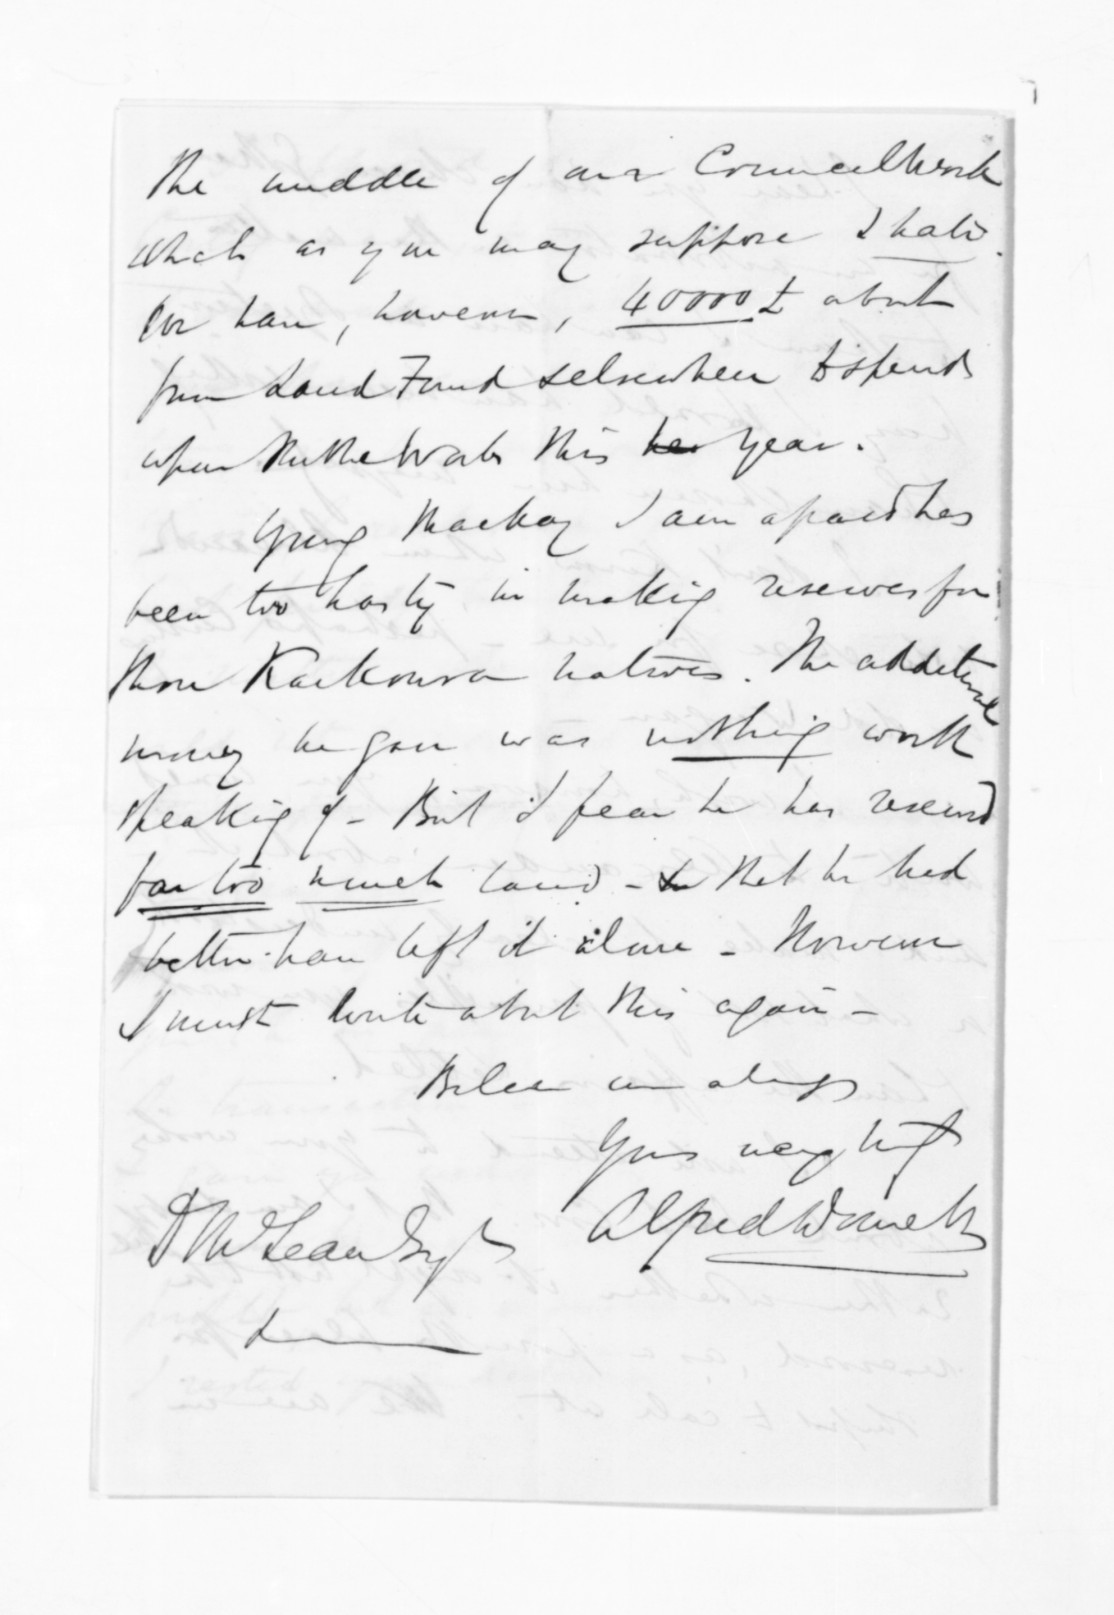 the middle of our Council Work
which as you may suppose I hate.
We have, however, 40000 £ about
from Land Fund & elsewhere to spend
upon Public Works this year.
Young Mackay I am afraid has
been too hasty in making reserves for
these Kaikoura natives. The additional
money he gave was nothing worth
speaking of - But I fear he has reserved
far too much land - that he had
better have left it alone - However
I must write about this again -
Believe me always
Yours very truly
Alfred Domett
D McLean Esqr